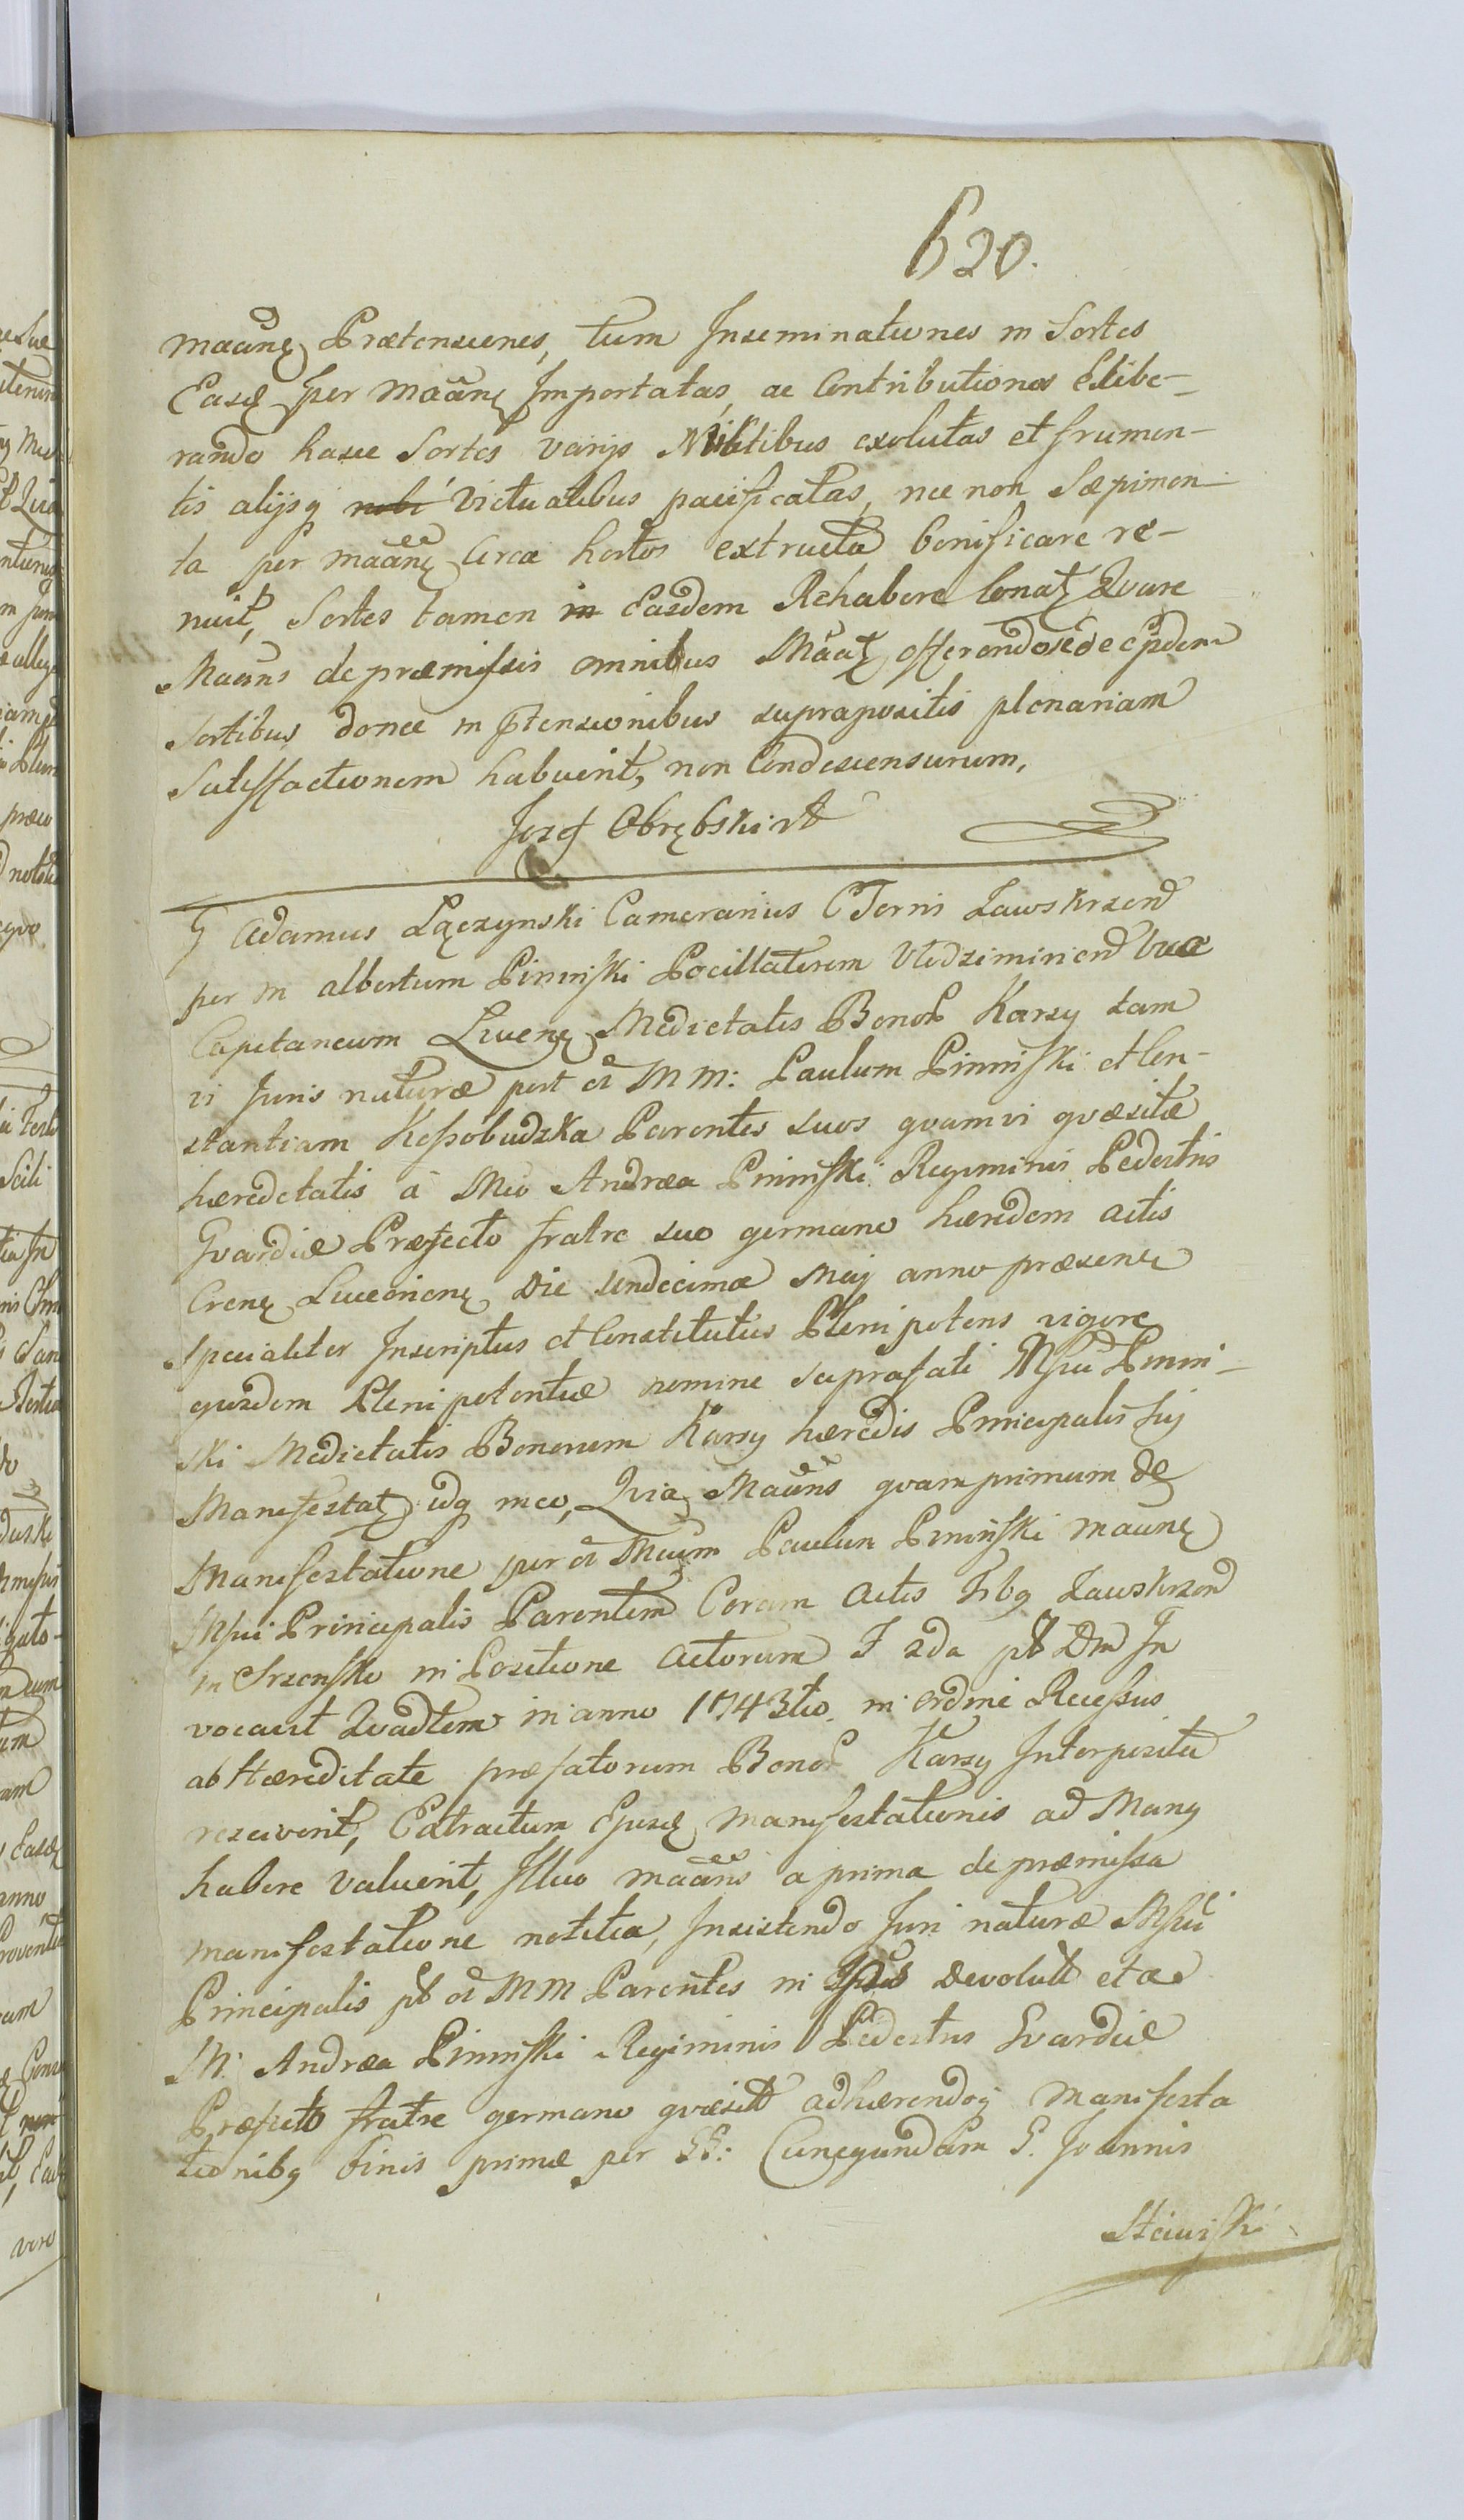 620.
maãnę Prætensiones, tum Inseminationes in Sortes
Easdę per maãnę Importatas, ac Contributiones Elibe-
rando hasce Sortes varijs Militibus exolutas et frumen-
tis alijsq victualibus pacificatas, nec non Sæpimen-
ta per maãnę Circa hortos extructa bonificare re-
nuit, Sortes tamen Easdem Rehabere Conatʒ Qvare
Maãns de præmissis omnibus Maãtʒ offerendo se de ejsdem
Sortibus donec in prtensionibus suprapositis plenariam
Satisfactionem habuerit, non Condescensurum,
Jozef Obrębski
G Adamus Łączynski Camerarius CTerris Zawskrzend
per M Albertum Pininski Pocillatorem Vlodzimiriend
Capitaneum Livenę Medietatis Bonor Karsy tam
vi Juris naturæ post MM: Paulum Pininski et Con-
stantiam Kossobudzka Parentes suos qvam vi qvæsitæ
hæredetatis à Mco Andrea Pininski Regiminis Pedestris
Gvardiæ Præfecto fratre suo germano hæredem actis
Crenę Liceonienę Die Undecima Maij anno præsenti
Specialiter Inscriptus et Constitutus Plenipotens vigore
ejusdem Plenipotentiæ nomine saprafati Msci Pinin-
ski Medietatis Bonorum Karsy hæredis Principalis sui
Manifestatʒ idq meo, Qvia Maãns qvamprimum de
Manifestatione per Mcum Paulum Pininski maãnę
Msci Principalis Parentem Coram Actis Trbq Zawskrzend
in Srzensko in Positione Actorum F 2da pt Dm In
vocavit Qvadtem in anno 1743tio in ordine Recessus
ab Hæreditate præfatorum Bonor Karsy Interposita
rescivent, Extractum Ejusdę manifestationis ad Manq
habere valuerit, Illico maãns a prima de præmissa
manifestatione notitia, Insistendo Juri naturæ Msci
Principalis pt MM Parentes in devolut et a
M: Andrea Pininski Regiminis Pedestris Gvardiæ
Præfecto fratre germano qvæsit adhærendoq Manifesta
tionibq binis primæ per GG: Cunegundam G. Joannis